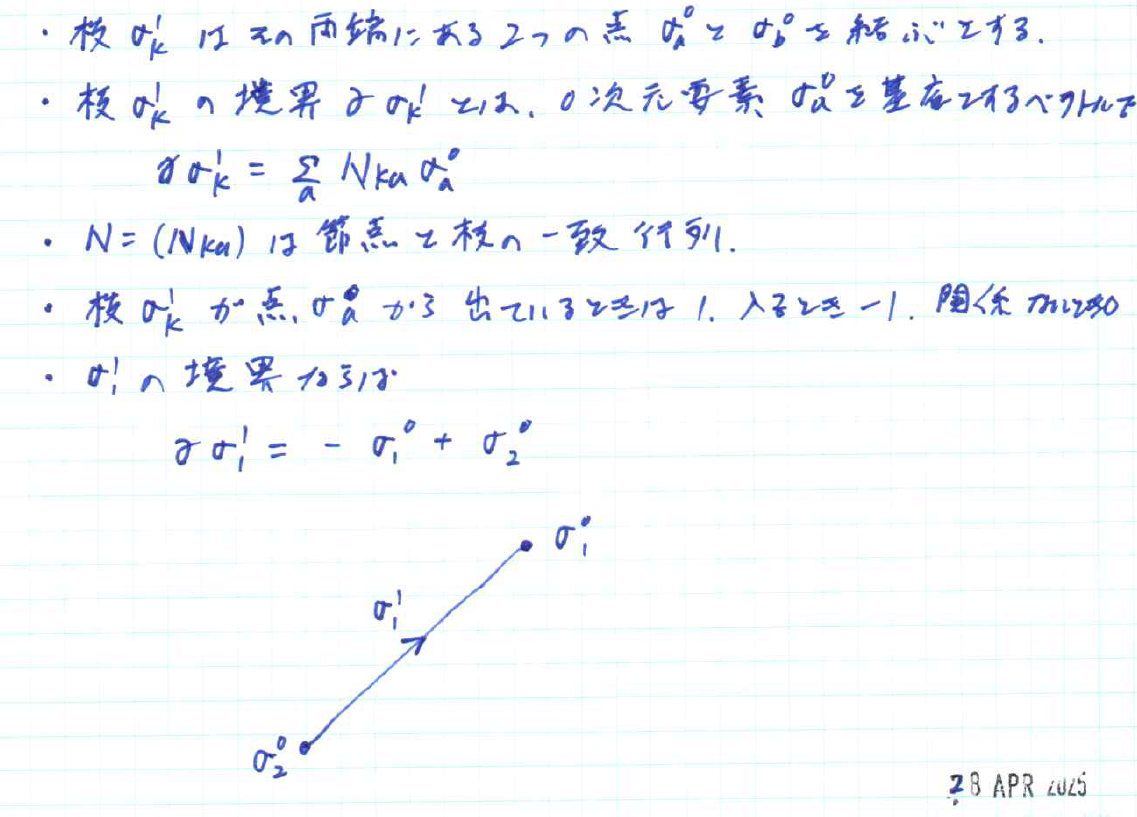 ・枝 σ_k^1 はその両端にある2つの点 σ_a^0 と σ_b^0 を結ぶとする.
・枝 σ_k^1 の境界 ∂σ_k^1 とは、0次元要素 σ_a^0 を基底とするベクトルで
∂σ_k^1 = Σ_a N_{ka} σ_a^0
・N = (N_{ka}) は節点と枝の一致行列.
・枝 σ_k^1 が点 σ_a^0 から出ているときは 1. 入るとき −1. 関係ないとき0
・σ_1^1 の境界ならば
∂σ_1^1 = − σ_1^0 + σ_2^0
σ_1^0
σ_1^1
σ_2^0
28 APR 2025